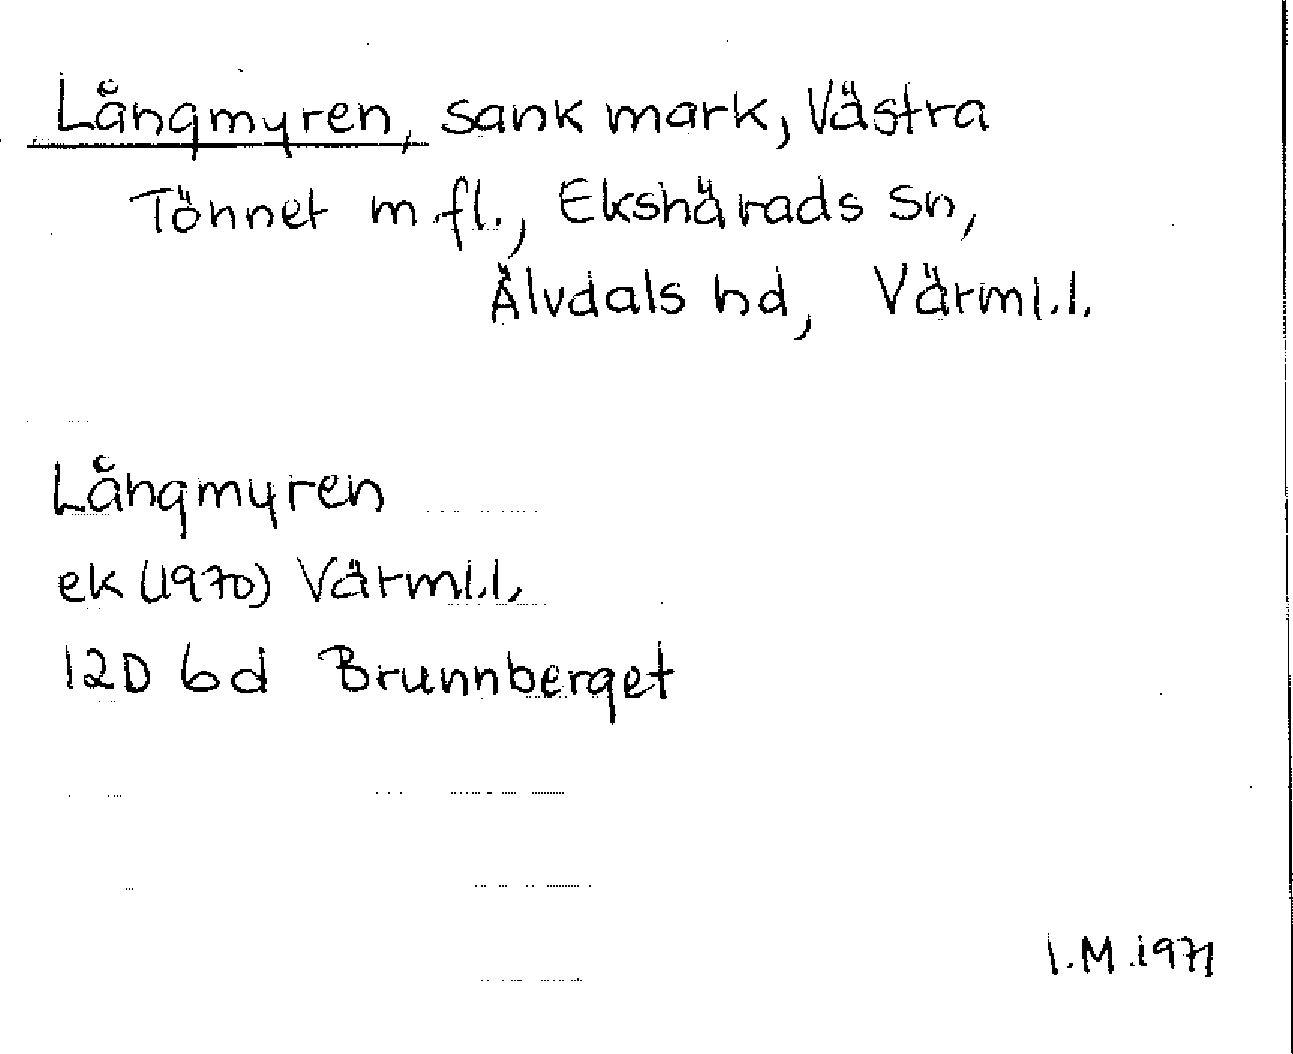 Långmyren, sank mark, Västra
Tönnet m.fl., Ekshärads sn,
Älvdals hd, Värml.l.
Långmyren
ek (1970) Värml.l.
12D 6d Brunnberget
I.M.1971